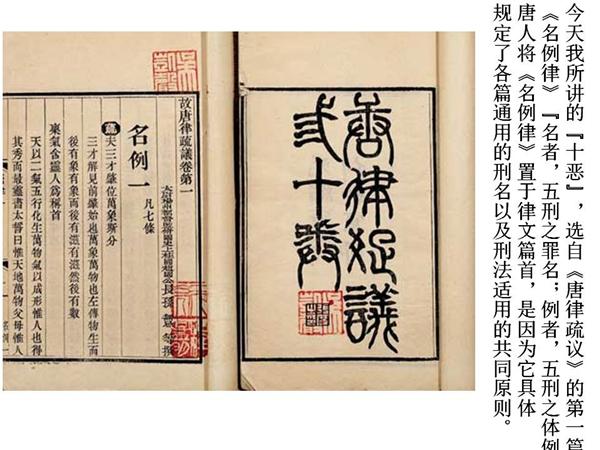 今天我所讲的『十恶』，选自《唐律疏议》的第一篇
《名例律》『名者，五刑之罪名；例者，五刑之体例
唐人将《名例律》置于律文篇首，是因为它具体
规定了各篇通用的刑名以及刑法适用的共同原则。
唐律疏議
弎十卷
故唐律疏議卷第一
長孫無忌等撰
名例一 凡七條
疏夫三才肇位萬象斯分
三才解見前肇始也萬象萬物也左傳物生而
後有象象而後有滋滋然後有數
稟氣含靈人爲稱首
天以二氣五行化生萬物氣以成形惟人也得
其秀而最靈書太誓曰惟天地萬物父母惟人